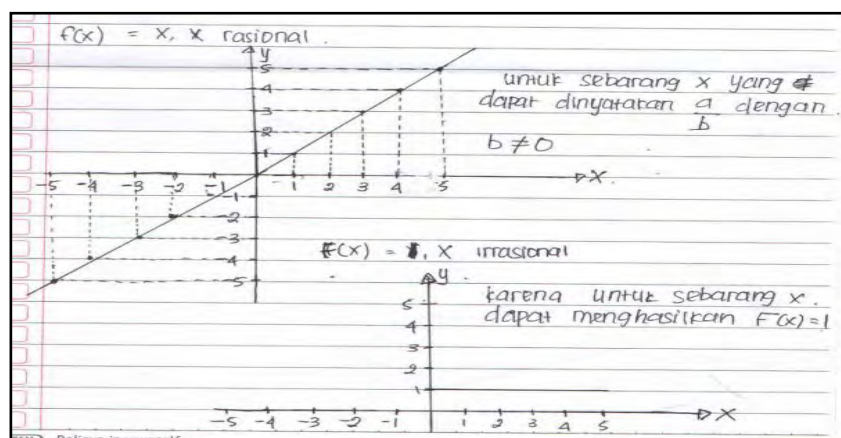 f(x) = x, x rasional.
y
5
4
3
2
1
-5 -4 -3 -2 -1 1 2 3 4 5 x.
-1
-2
-3
-4
-5
untuk sebarang x yang
dapat dinyatakan a/b dengan.
b ≠ 0
F(x) = 1, x irrasional
y
5
4
3
2
1
-5 -4 -3 -2 -1 1 2 3 4 5 x
karena untuk sebarang x.
dapat menghasilkan F(x)=1